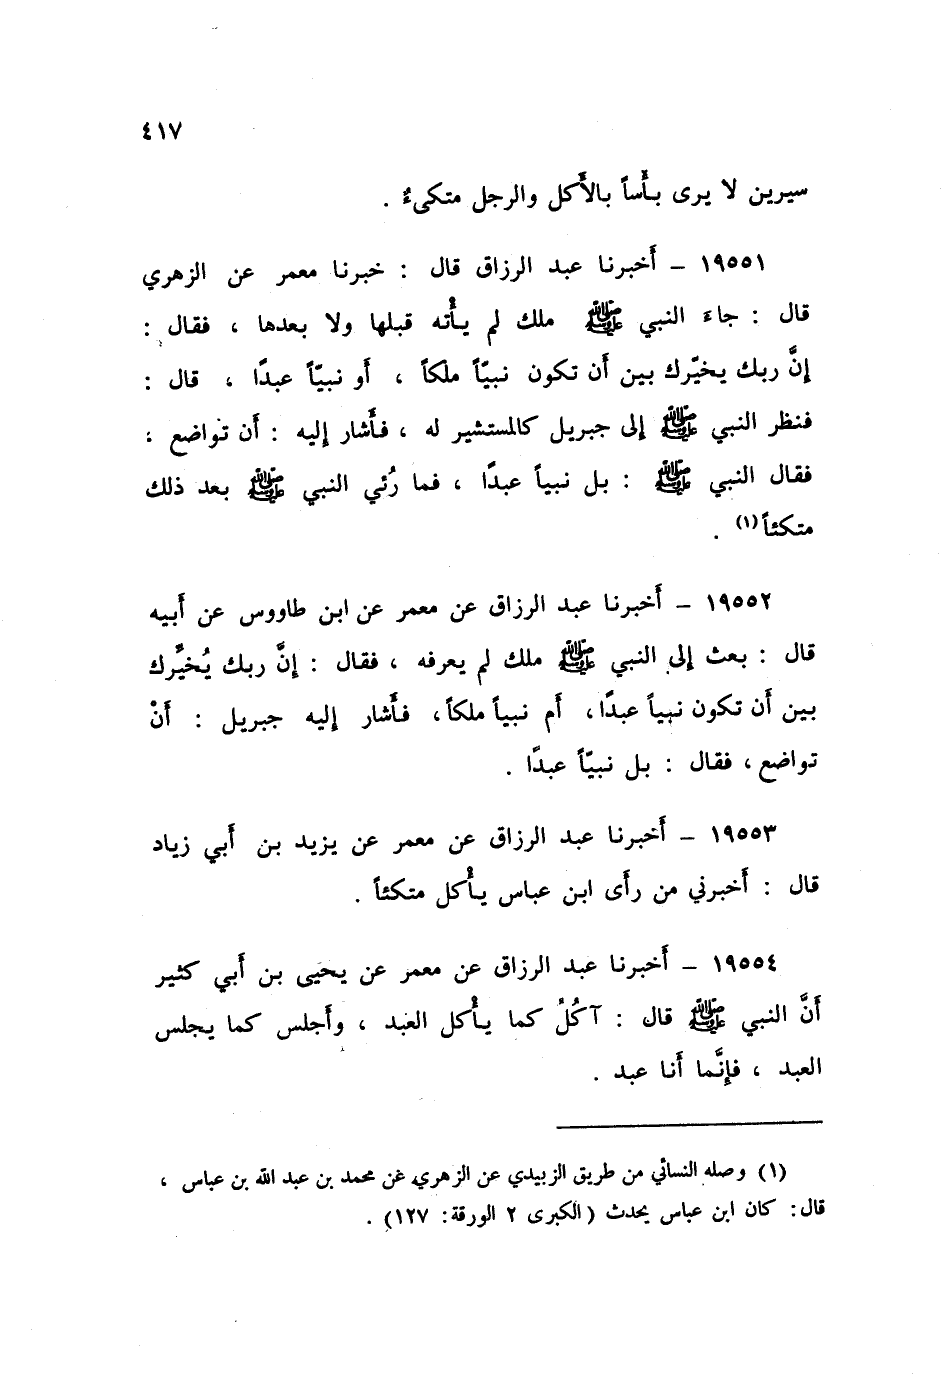 ٤١٧
سيرين لا يرى بأْساً بالأَكل والرجل متكىءٌ .
١٩٥٥١ – أَخبرنا عبد الرزاق قال : خبرنا معمر عن الزهري
قال : جاءَ النبي ﷺ ملك لم يأْته قبلها ولا بعدها ، فقال :
إنَّ ربك يخيّرك بين أَن تكون نبيّاً ملكاً ، أَو نبيّاً عبدًا ، قال :
فنظر النبي ﷺ إلى جبريل كالمستشير له ، فأَشار إليه : أَن تواضع ،
فقال النبي ﷺ : بل نبياً عبدًا ، فما رُئي النبي ﷺ بعد ذلك
متكئاً(١) .
١٩٥٥٢ – أَخبرنا عبد الرزاق عن معمر عن ابن طاووس عن أَبيه
قال : بعث إلى النبي ﷺ ملك لم يعرفه ، فقال : إنَّ ربك يُخيِّرك
بين أَن تكون نبياً عبدًا، أَم نبياً ملكاً، فأَشار إليه جبريل : أَنْ
تواضع ، فقال : بل نبيّاً عبدًا .
١٩٥٥٣ – أَخبرنا عبد الرزاق عن معمر عن يزيد بن أَبي زياد
قال : أَخبرني من رأَى ابن عباس يأْكل متكئاً .
١٩٥٥٤ – أَخبرنا عبد الرزاق عن معمر عن يحيى بن أَبي كثير
أَنَّ النبي ﷺ قال : آكُلُ كما يأْكل العبد ، وأَجلس كما يجلس
العبد ، فإنَّما أَنا عبد .
(١) وصله النسائي من طريق الزبيدي عن الزهري عن محمد بن عبد الله بن عباس ،
قال: كان ابن عباس يحدث (الكبرى ٢ الورقة: ١٢٧) .